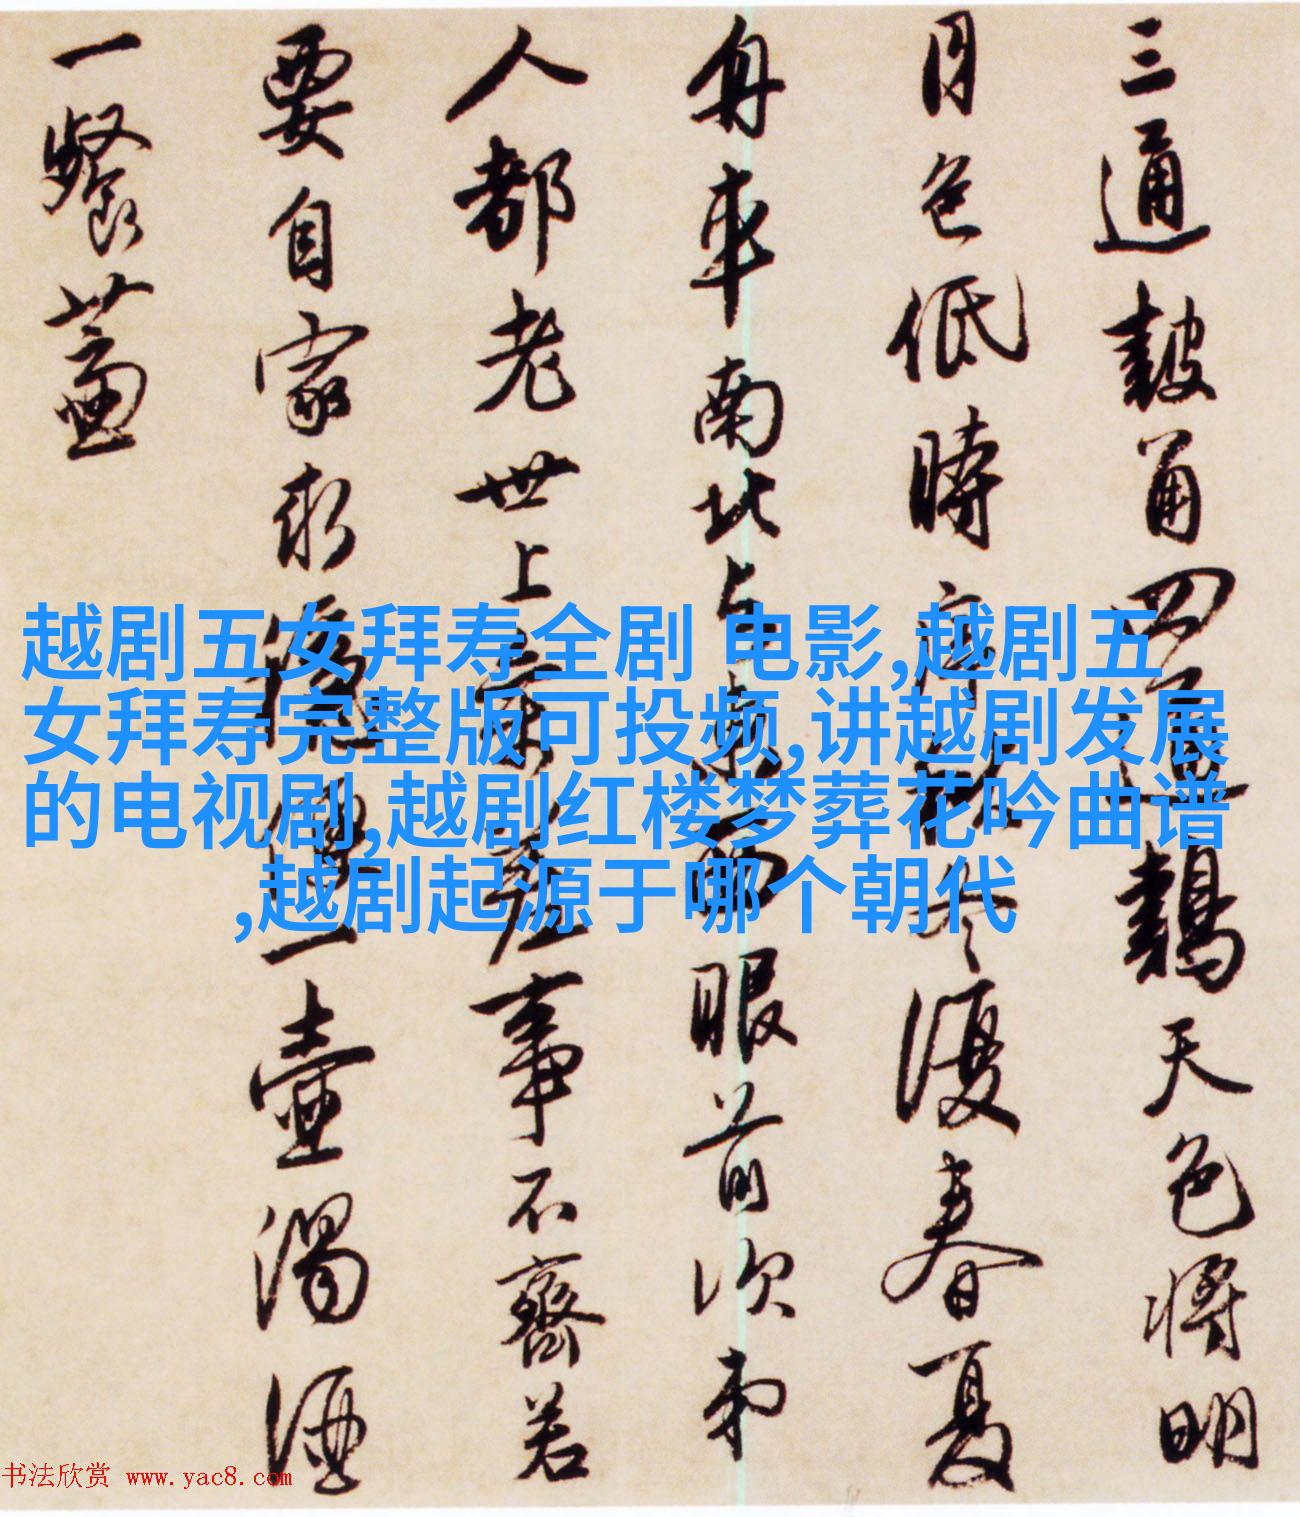 三通皷角四鷄天色將明
月色低時序秋冬復春夏
舟車南北與東西眼前次第
人都老世上參差事不齊若
要自家求穩便一壺濁酒
一餐虀
越剧五女拜寿全剧 电影,越剧五
女拜寿完整版可投频,讲越剧发展
的电视剧,越剧红楼梦葬花吟曲谱
,越剧起源于哪个朝代
书法欣赏 www.yac8.com